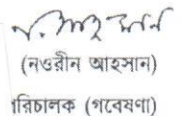 (নওরীন আহসান)
পরিচালক (গবেষণা)